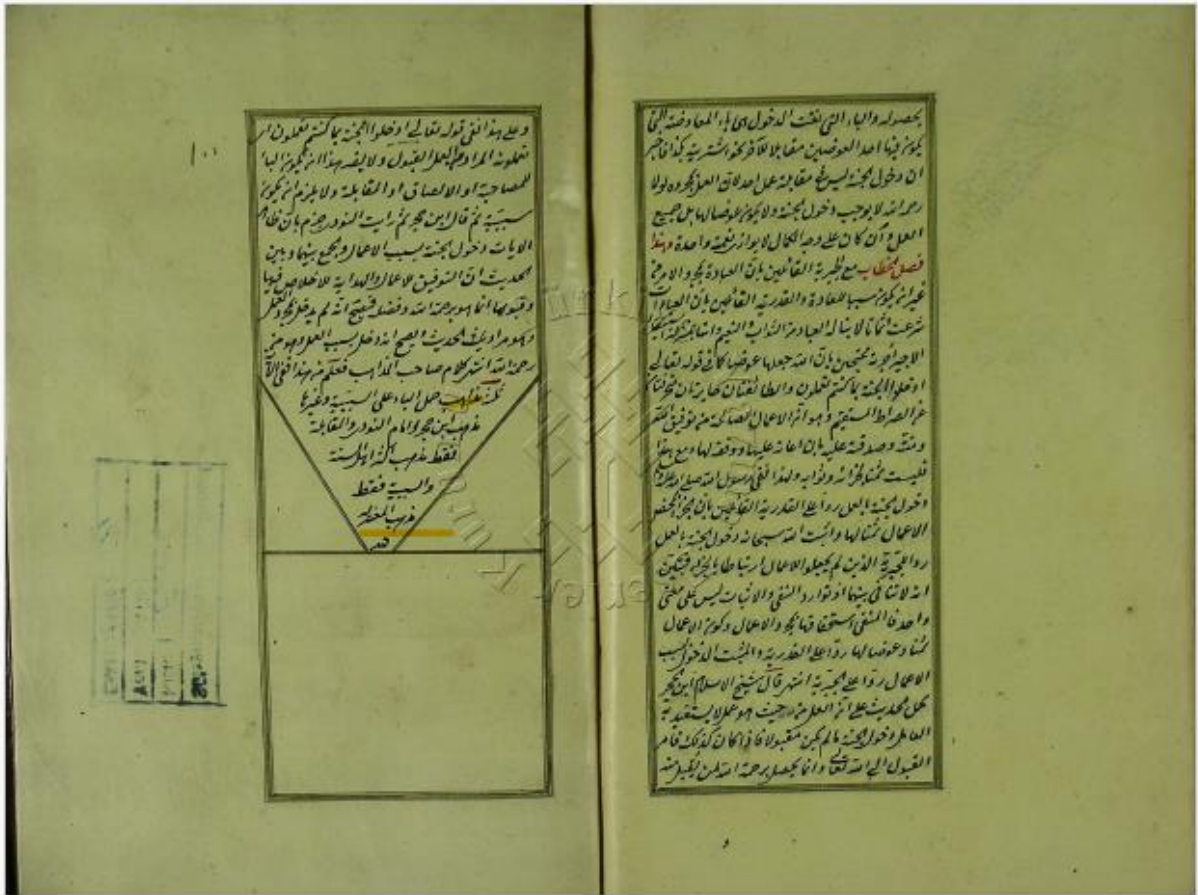 بحصوله والباء التى نفت الدخول هى باء المعاوضة التى
يكون فيها احد العوضين مقابلا للآخر نحو اشتريته بكذا فاخبر
ان دخول الجنة ليس فى مقابلة عمل احد لان العمل بمجرده لولا
رحمة الله لا يوجب دخول الجنة ولا يكون عوضا لها بل جميع
العمل وان كان على وجه الكمال لا يوازى نعمة واحدة وهذا
فصل الخطاب مع الجبرية القائلين بان العبادة بمجرد الامر من
غير ان يكون سببا للسعادة والقدرية القائلين بان العبادات
شرعت اثمانا لا يناله العباد من الثواب والنعيم وانها بمنزلة استيفاء
الاجير اجرته محتجين بان الله جعلها عوضا كما فى قوله تعالى
ادخلوا الجنة بما كنتم تعملون والطائفتان جائرتان منحرفتان
عن الصراط المستقيم وهو ان الاعمال الصالحة من توفيق الله
ومنته وصدقته عليه بان اعانه عليها ووفقه لها ومع هذا
فليست ثمنا لجزائه وثوابه ولهذا نفى رسول الله صلى الله عليه وسلم
دخول الجنة بالعمل ردا على القدرية القائلين بان الجزاء بمحض
الاعمال ثمنا لها واثبت الله سبحانه دخول الجنة بالعمل
ردا للجبرية الذين لم يجعلوا الاعمال ارتباطا بالجزاء فتبين
انه لا تنافى بينهما اذ توارد النفى والاثبات ليس على معنى
واحد فالمنفى استحقاقها بمجرد الاعمال وكون الاعمال
ثمنا وعوضا لها ردا على القدرية والمثبت الدخول بسبب
الاعمال ردا على الجبرية انتهى قال شيخ الاسلام ابن حجر
يحمل الحديث على ان العمل من حيث هو عمل لا يستفيد به
العامل دخول الجنة ما لم يكن مقبولا فاذا كان كذلك فامر
القبول الى الله تعالى وانما يحصل برحمة الله لمن يقبل منه
١٠٠
وعلى هذا فمعنى قوله تعالى ادخلوا الجنة بما كنتم تعملون اى
تعملونه المراد بالعمل القبول ولا يضر هذا ان يكون الباء
للمصاحبة او الالصاق او المقابلة ولا يلزم ان يكون
سببية ثم قال ابن حجر ثم رايت النووى جزم بان ظاهر
الايات دخول الجنة بسبب الاعمال والجمع بينها وبين
الحديث ان التوفيق للاعمال والهداية للاخلاص فيها
وقبولها انما هو برحمة الله وفضله فيصح انه لم يدخل بمجرد العمل
وهو مراد الحديث ويصح انه دخل بسبب العمل وهو من
رحمة الله انتهى كلام صاحب المذاهب فعلم من هذا
ثلثة مذاهب حمل الباء على السببية وغيرها
مذهب ابن حجر وامام النووى والمقابلة
فقط مذهب اكثر اهل السنة
والسببية فقط
مذهب المعتزلة